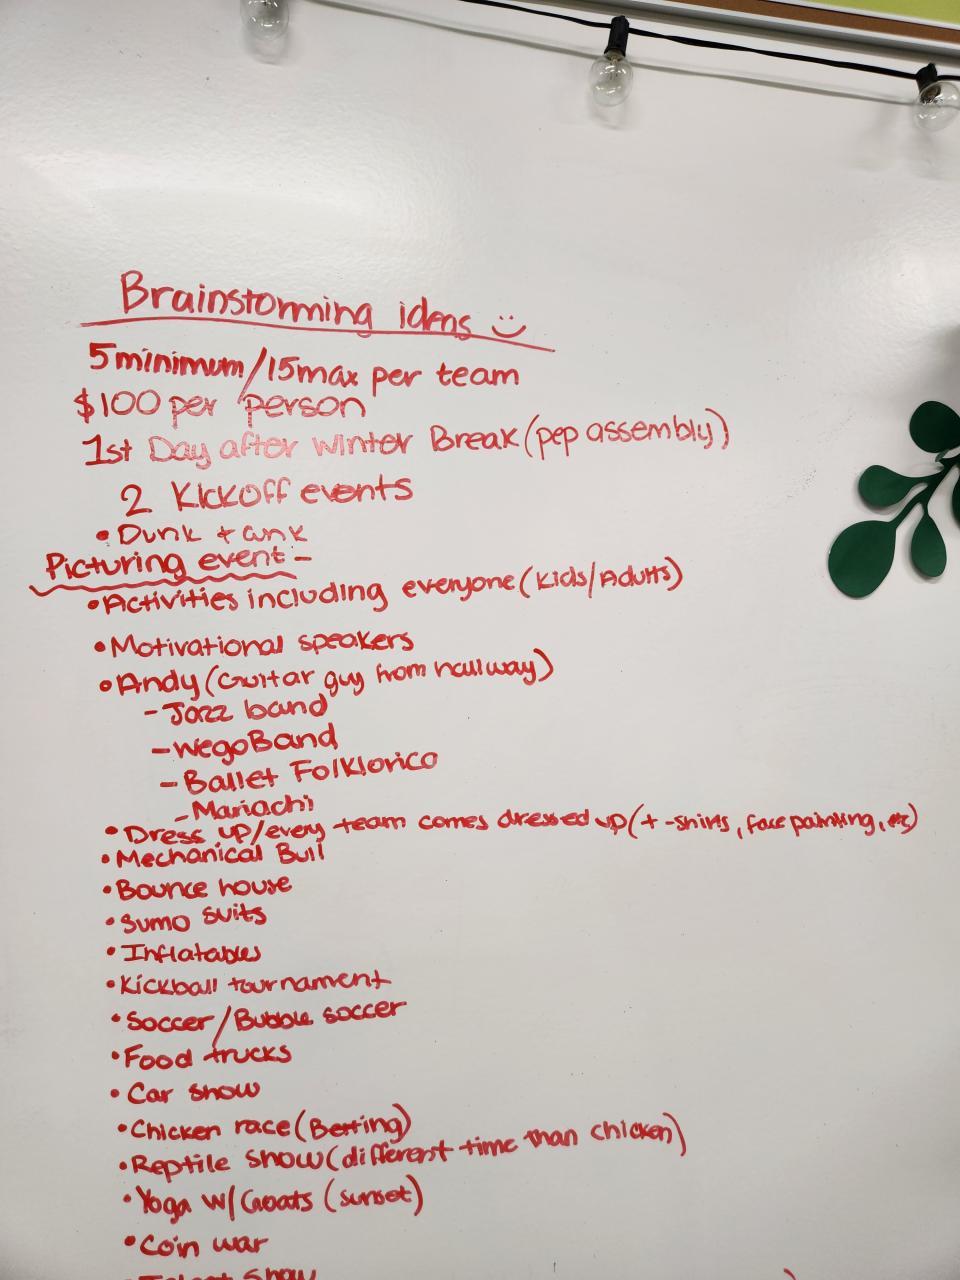 Brainstorming ideas
5 minimum/15 max per team
$100 per person
1st Day after Winter Break (pep assembly)
2 Kickoff events
• Dunk tank
Picturing event -
• Activities including everyone (Kids/Adults)
• Motivational speakers
• Andy (Guitar guy from hallway)
- Jazz band
- Wego Band
- Ballet Folklorico
- Mariachi
• Dress up/every team comes dressed up (t-shirts, face painting, etc)
• Mechanical Bull
• Bounce house
• Sumo suits
• Inflatables
• Kickball tournament
• Soccer/Bubble soccer
• Food trucks
• Car show
• Chicken race (Betting)
• Reptile show (different time than chicken)
• Yoga w/ Goats (sunset)
• Coin war
• Talent Show